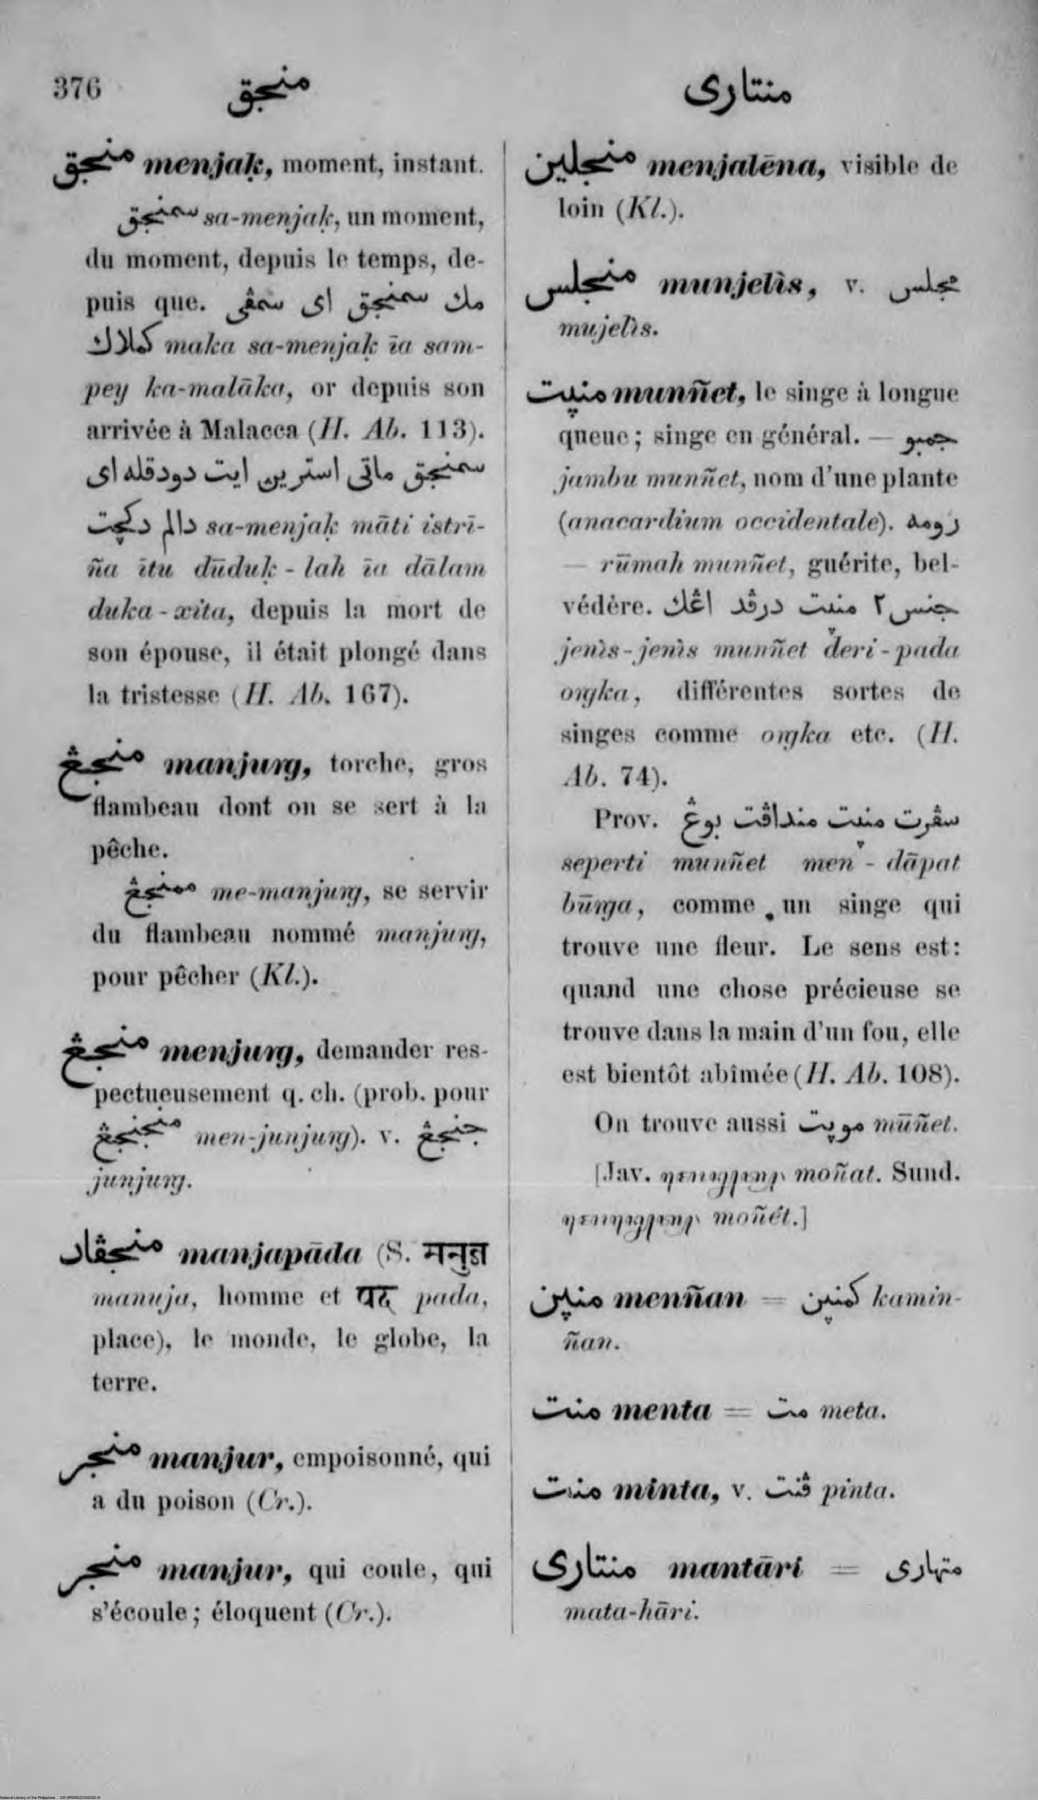 376 منجق منتاری
منجق menjaḳ, moment, instant.
سمنجق sa-menjaḳ, un moment,
du moment, depuis le temps, de-
puis que. مك سمنجق ای سمڤی
كملاك maka sa-menjaḳ īa sam-
pey ka-malāka, or depuis son
arrivée à Malacca (H. Ab. 113).
سمنجق ماتی استرين ايت دودقله ای
دالم دكچت sa-menjaḳ māti istrī-
ña ītu dūduḳ-lah īa dālam
duka-xita, depuis la mort de
son épouse, il était plongé dans
la tristesse (H. Ab. 167).
منجڠ manjurg, torche, gros
flambeau dont on se sert à la
pêche.
ممنجڠ me-manjurg, se servir
du flambeau nommé manjurg,
pour pêcher (Kl.).
منجڠ menjurg, demander res-
pectueusement q. ch. (prob. pour
منجنجڠ men-junjurg). v. جنجڠ
junjurg.
منجڤاد manjapāda (S. मनुज
manuja, homme et पद pada,
place), le monde, le globe, la
terre.
منجر manjur, empoisonné, qui
a du poison (Cr.).
منجر manjur, qui coule, qui
s'écoule; éloquent (Cr.).
منجلين menjalēna, visible de
loin (Kl.).
منجلس munjelìs, v. مجلس
mujelìs.
منڽت munñet, le singe à longue
queue; singe en général. — جمبو
jambu munñet, nom d'une plante
(anacardium occidentale). رومه
— rūmah munñet, guérite, bel-
védère. جنس٢ منڽت درڤد اڠك
jenìs-jenìs munñet deri-pada
orgka, différentes sortes de
singes comme orgka etc. (H.
Ab. 74).
Prov. سڤرت منڽت منداڤت بوڠ
seperti munñet men-dāpat
būrga, comme un singe qui
trouve une fleur. Le sens est:
quand une chose précieuse se
trouve dans la main d'un fou, elle
est bientôt abîmée (H. Ab. 108).
On trouve aussi موڽت mūñet.
[Jav. moñat. Sund.
moñét.]
منڽن menñan = كمنڽن kamin-
ñan.
منت menta = مت meta.
منت minta, v. ڤنت pinta.
منتاری mantāri = متهاری
mata-hāri.